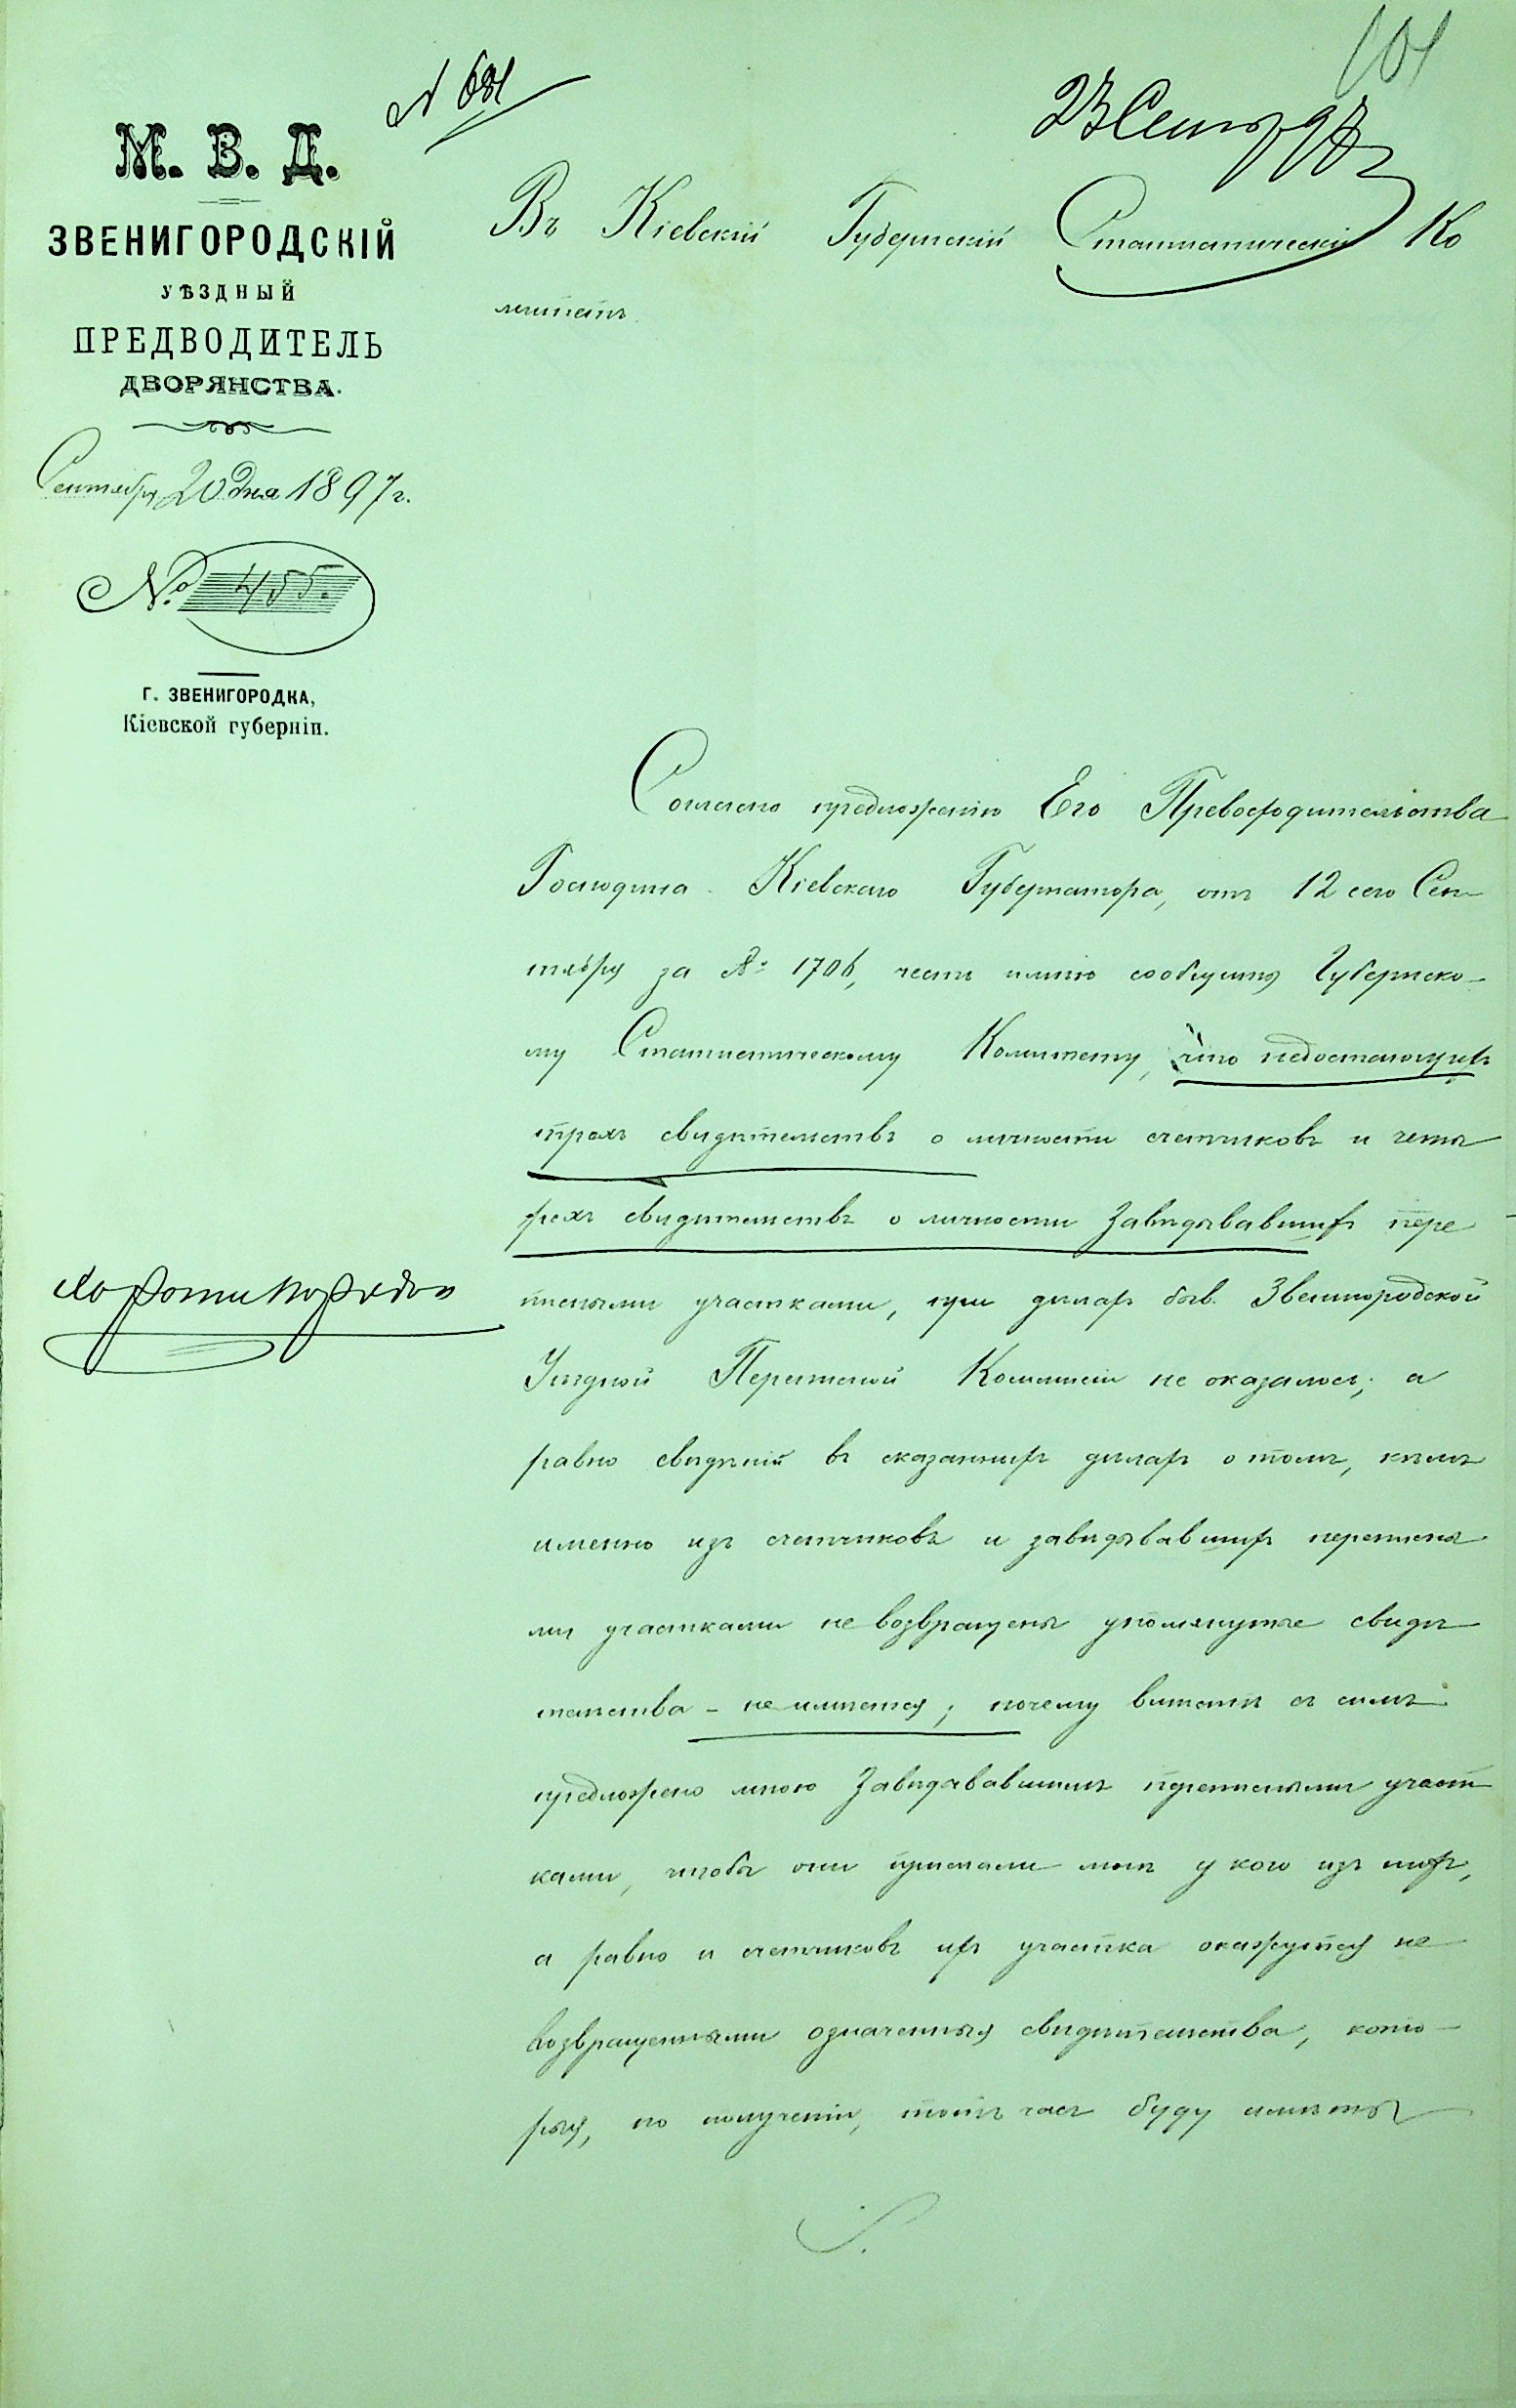 101
№ 681
23 Сент 97 г
М. В. Д.
ЗВЕНИГОРОДСКІЙ
УѢЗДНЫЙ
ПРЕДВОДИТЕЛЬ
ДВОРЯНСТВА.
Сентября 20 дня 1897 г.
№ 455.
Г. ЗВЕНИГОРОДКА,
Кіевской губерніи.
Въ Кіевскій Губернскій Статистическій Ко
митетъ
Согласно предложенію Его Превосходительства
Господина Кіевскаго Губернатора, отъ 12 сего Сен-
тября за № 1706, честь имѣю сообщить Губернско-
му Статистическому Комитету, что недостающихъ
трехъ свидѣтельствъ о личности счетчиковъ и четы
рехъ свидѣтельствъ о личности Завѣдывавшихъ пере
писными участками, при дѣлахъ быв. Звенигородской
Уѣздной Переписной Коммисіи не оказалось; а
равно свѣдѣній въ сказанныхъ дѣлахъ о томъ, кѣмъ
именно изъ счетчиковъ и завѣдывавшихъ переписны
ми участками не возвращены упомянутые свидѣ
тельства - не имѣется; почему вмѣстѣ съ симъ
предложено мною Завѣдывавшимъ переписными участ
ками, чтобы они прислали мнѣ у кого изъ нихъ,
а равно и счетчиковъ ихъ участка окажутся не
возвращенными означенныя свидѣтельства, кото-
рыя, по полученіи, тотъ часъ буду имѣть